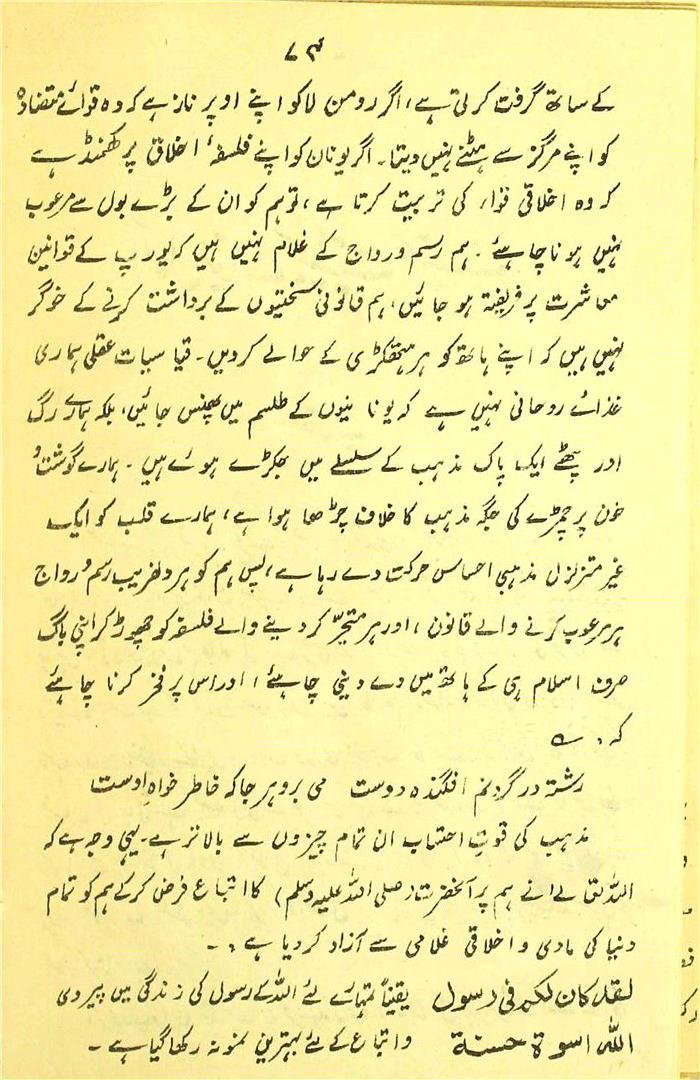 ۷۴
کے ساتھ گرفت کرتی ہے، اگر رومن لا کو اپنے اوپر ناز ہے کہ وہ قوائے متضادہ
کو اپنے مرکز سے ہٹنے نہیں دیتا۔ اگر یونان کو اپنے فلسفۂ اخلاق پر گھمنڈ ہے
کہ وہ اخلاقی قواء کی تربیت کرتا ہے، تو ہم کو ان کے بڑے بول سے مرعوب
نہیں ہونا چاہئے۔ ہم رسم و رواج کے غلام نہیں ہیں کہ یورپ کے قوانین
معاشرت پر فریفتہ ہو جائیں، ہم قانونی سختیوں کے برداشت کرنے کے خوگر
نہیں ہیں کہ اپنے ہاتھ کو ہر ہتھکڑی کے حوالے کر دیں۔ قیاسیات عقلی ہماری
غذائے روحانی نہیں ہے کہ یونانیوں کے طلسم میں پھنس جائیں، بلکہ ہمارے رگ
اور پٹھے ایک پاک مذہب کے سلسلے میں جکڑے ہوئے ہیں۔ ہمارے گوشت و
خون پر چمڑے کی جگہ مذہب کا غلاف چڑھا ہوا ہے، ہمارے قلب کو ایک
غیر متزلزل مذہبی احساس حرکت دے رہا ہے، پس ہم کو ہر دلفریب رسم و رواج
ہر مرعوب کرنے والے قانون، اور ہر متحیّر کر دینے والے فلسفہ کو چھوڑ کر اپنی باگ
صرف اسلام ہی کے ہاتھ میں دے دینی چاہئے، اور اس پر فخر کرنا چاہئے
کہ۔ ؎
رشتہ در گردنم افگندہ دوست می برو ہر جا کہ خاطر خواہِ اوست
مذہب کی قوتِ احتساب ان تمام چیزوں سے بالاتر ہے۔ یہی وجہ ہے کہ
اللہ تعالےٰ نے ہم پر آنحضرت (صلی اللہ علیہ وسلم) کا اتباع فرض کر کے ہم کو تمام
دنیا کی مادی و اخلاقی غلامی سے آزاد کر دیا ہے۔ ۔
لقد کان لکم فی رسول یقیناً تمہارے لئے اللہ کے رسول کی زندگی میں پیروی
اللہ اسوۃ حسنۃ و اتباع کے لئے بہترین نمونہ رکھا گیا ہے۔